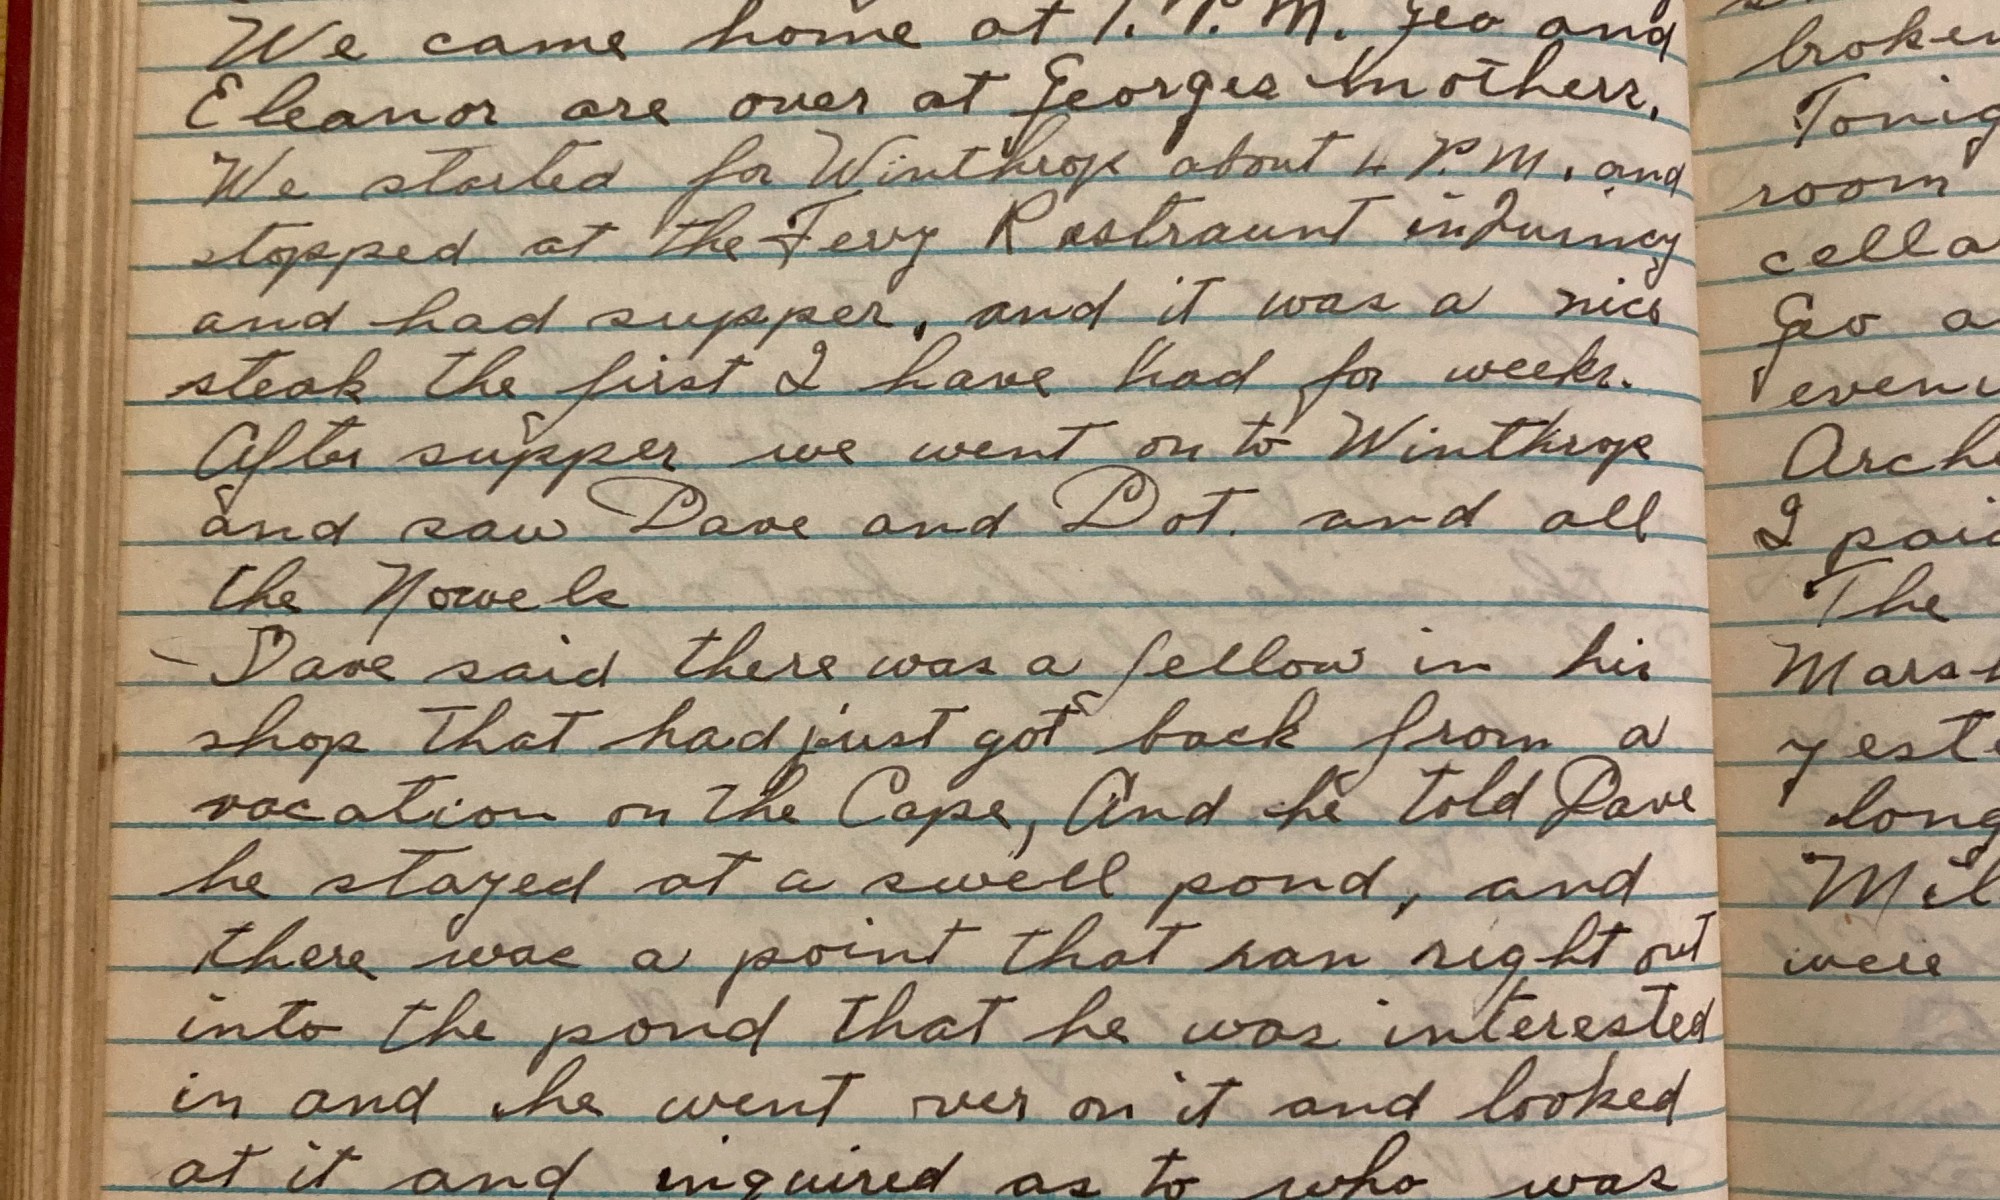 We came home at 1. P.M. Geo and
Eleanor are over at Georges mothers.
We started for Winthrop about 4 P.M. and
stopped at the Fery Rastraunt in Quincy
and had supper, and it was a nice
steak the first I have had for weeks.
After supper we went on to Winthrop
and saw Dave and Dot. and all
the Nowels
Dave said there was a fellow in his
shop that had just got back from a
vacation on the Cape, And he told Dave
he stayed at a swell pond, and
there was a point that ran right out
into the pond that he was interested
in and he went over on it and looked
at it and inquired as to who was
broken
Tonig
room
cella
Geo a
even
Arch
I paid
The
Mars
yest
long
Mil
were